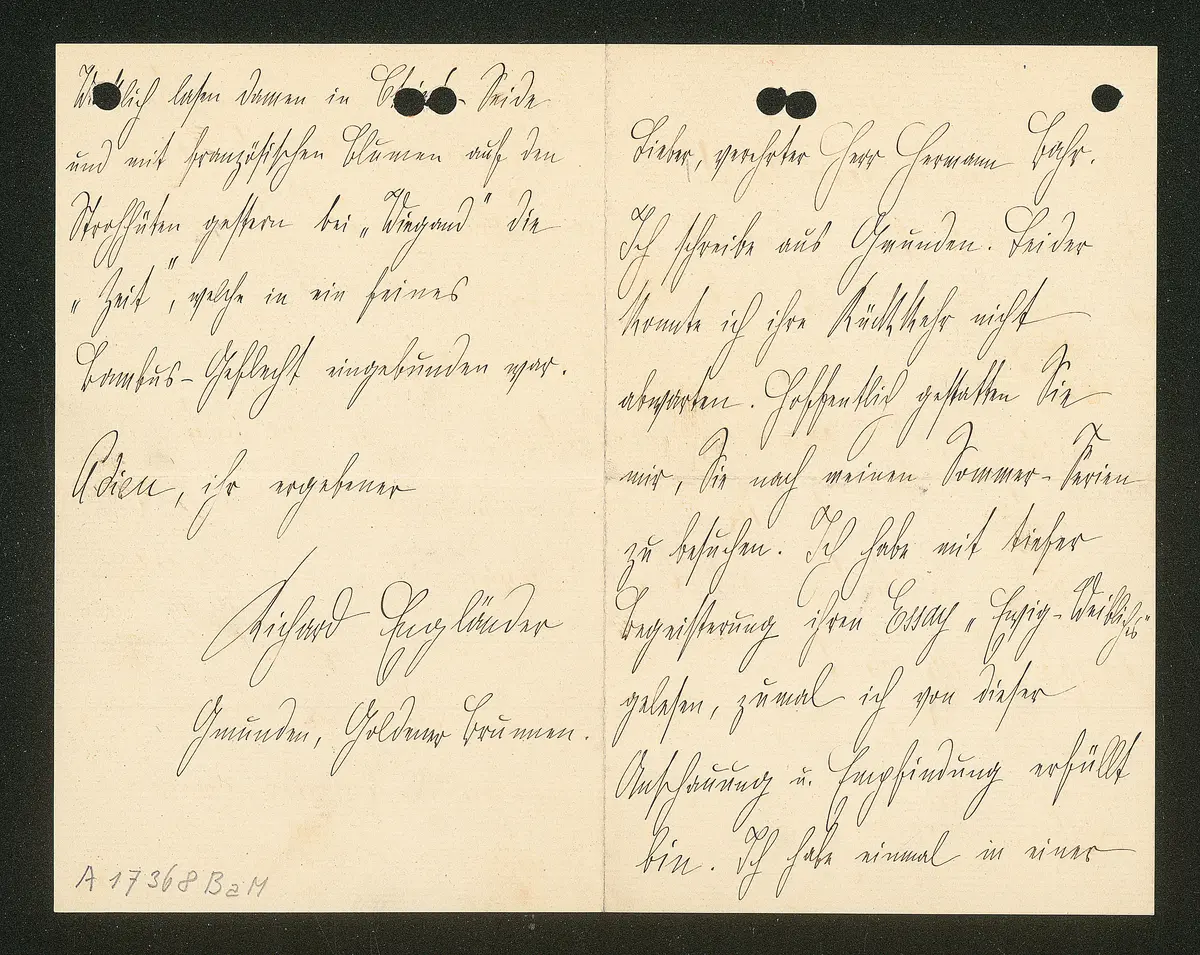 Wirklich lasen Damen in Seide
und mit französischen Blumen auf den
Strohhüten gestern bei „Wiegand" die
„Zeit", welche in ein feines
Bambus-Geflecht eingebunden war.
Adieu, ihr ergebener
Richard Engländer
Gmunden, Goldener Brunnen.
A 17368 BaM
Lieber, verehrter Herr Hermann Bahr.
Ich schreibe aus Gmunden. Leider
konnte ich ihre Rückkehr nicht
abwarten. Hoffentlich gestatten Sie
mir, Sie nach meinen Sommer-Ferien
zu besuchen. Ich habe mit tiefer
Begeisterung ihren Essay „Ewig-Weibliches"
gelesen, zumal ich von dieser
Anschauung u. Empfindung erfüllt
bin. Ich habe einmal in einer